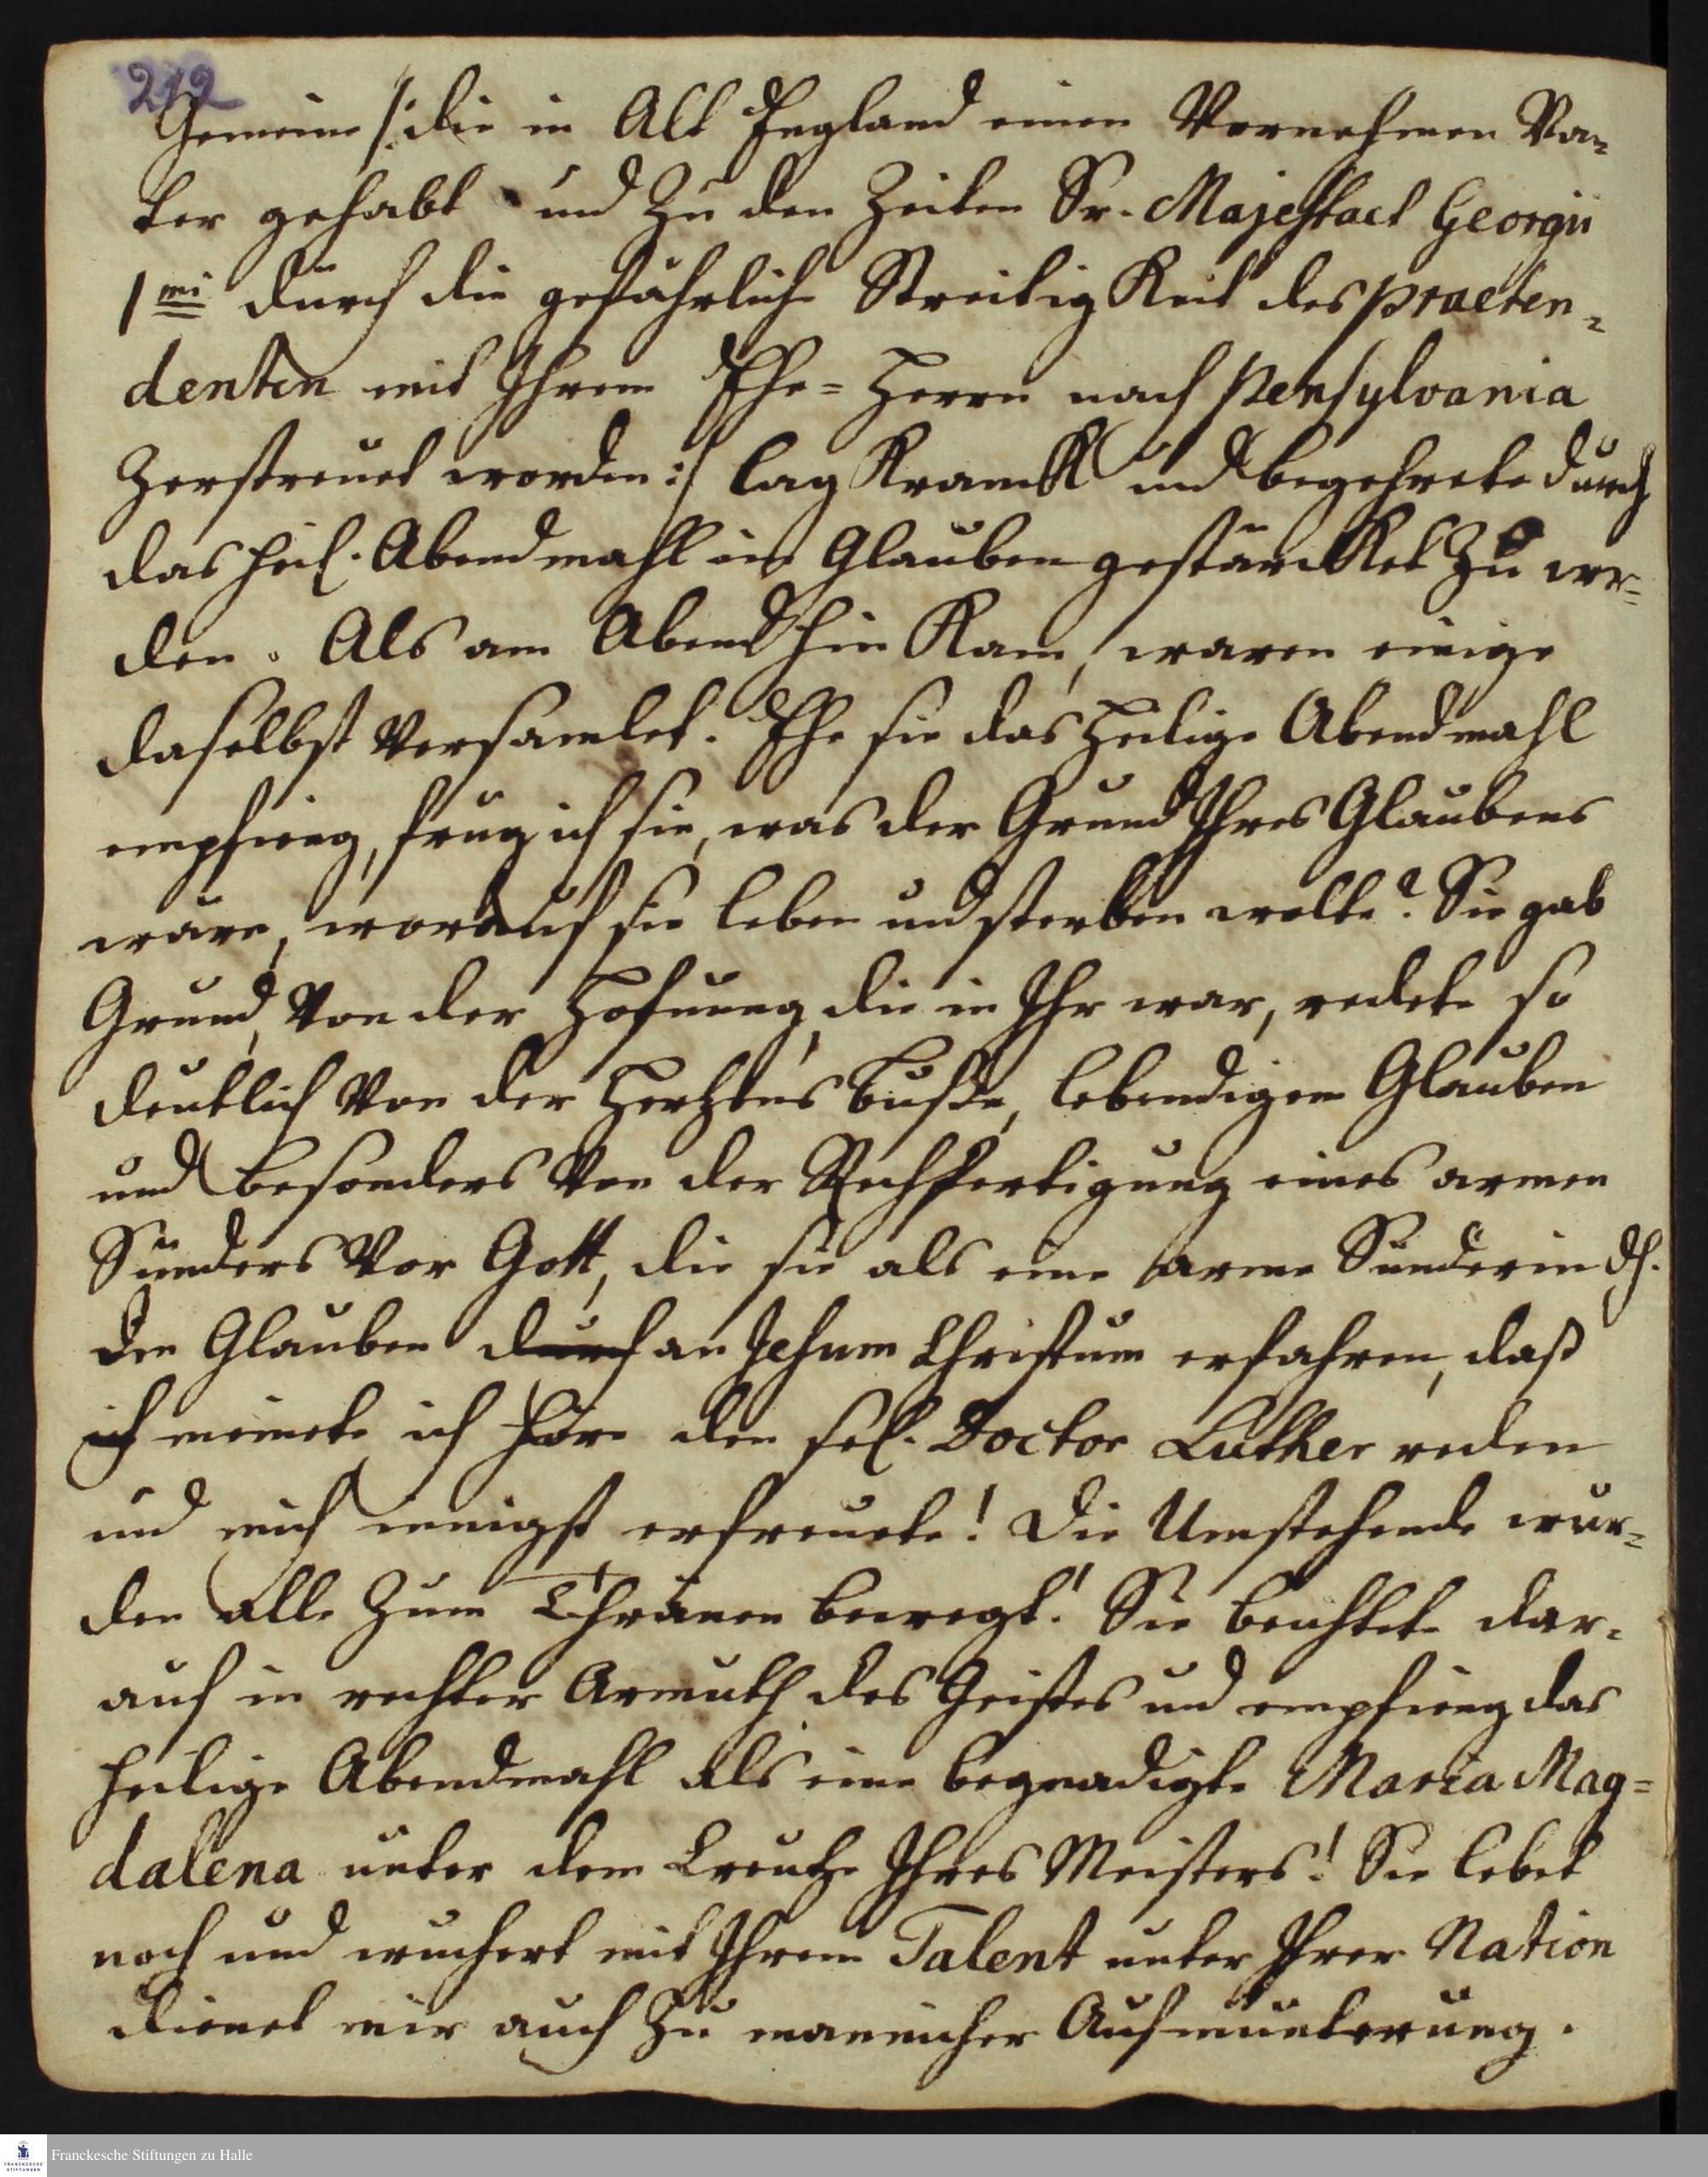 212
Gemeine /: die in Alt England einen Vornehmen Va-
ter gehabt und zu den Zeiten Sr. Majestaet Georgii
1mi durch die gefährliche Streitigkeit des praeten-
denten mit Ihrem Ehe-Herrn nach Pensylvania
zerstreuet worden :/ lag kranck und begehrete durch
das heil. Abendmahl im Glauben gestärcket zu wer-
den. Als am Abend hin kam, waren einige
daselbst Versamlet. Ehe sie das heilige Abendmahl
empfieng, frug ich sie, was der Grund Ihres Glaubens
wäre, worauf sie leben und sterben wolte? Sie gab
Grund, Von der Hofnung, die in Ihr war, redete so
deutlich Von der Herzens buße, lebendigem Glauben
und besonders Von der Rechtfertigung eines armen
Sünders Vor Gott, die sie als eine arme Sünderin dh.
den Glauben durch an Jesum Christum erfahren, daß
ich meinete ich höre den sel. Doctor Luther reden
und mich innigst erfreuete! Die Umstehende wur-
den alle zum Thränen bewegt! Sie beichtete dar-
auf in rechter Armuth des Geistes und empfieng das
heilige Abendmahl als eine begnadigte Maria Mag-
dalena unter dem Creutze Ihres Meisters! Sie lebet
noch und wuchert mit Ihrem Talent unter Ihrer Nation
dienet mir auch zu mannicher Aufmunterung.
FRANCKESCHE
STIFTUNGEN
Franckesche Stiftungen zu Halle